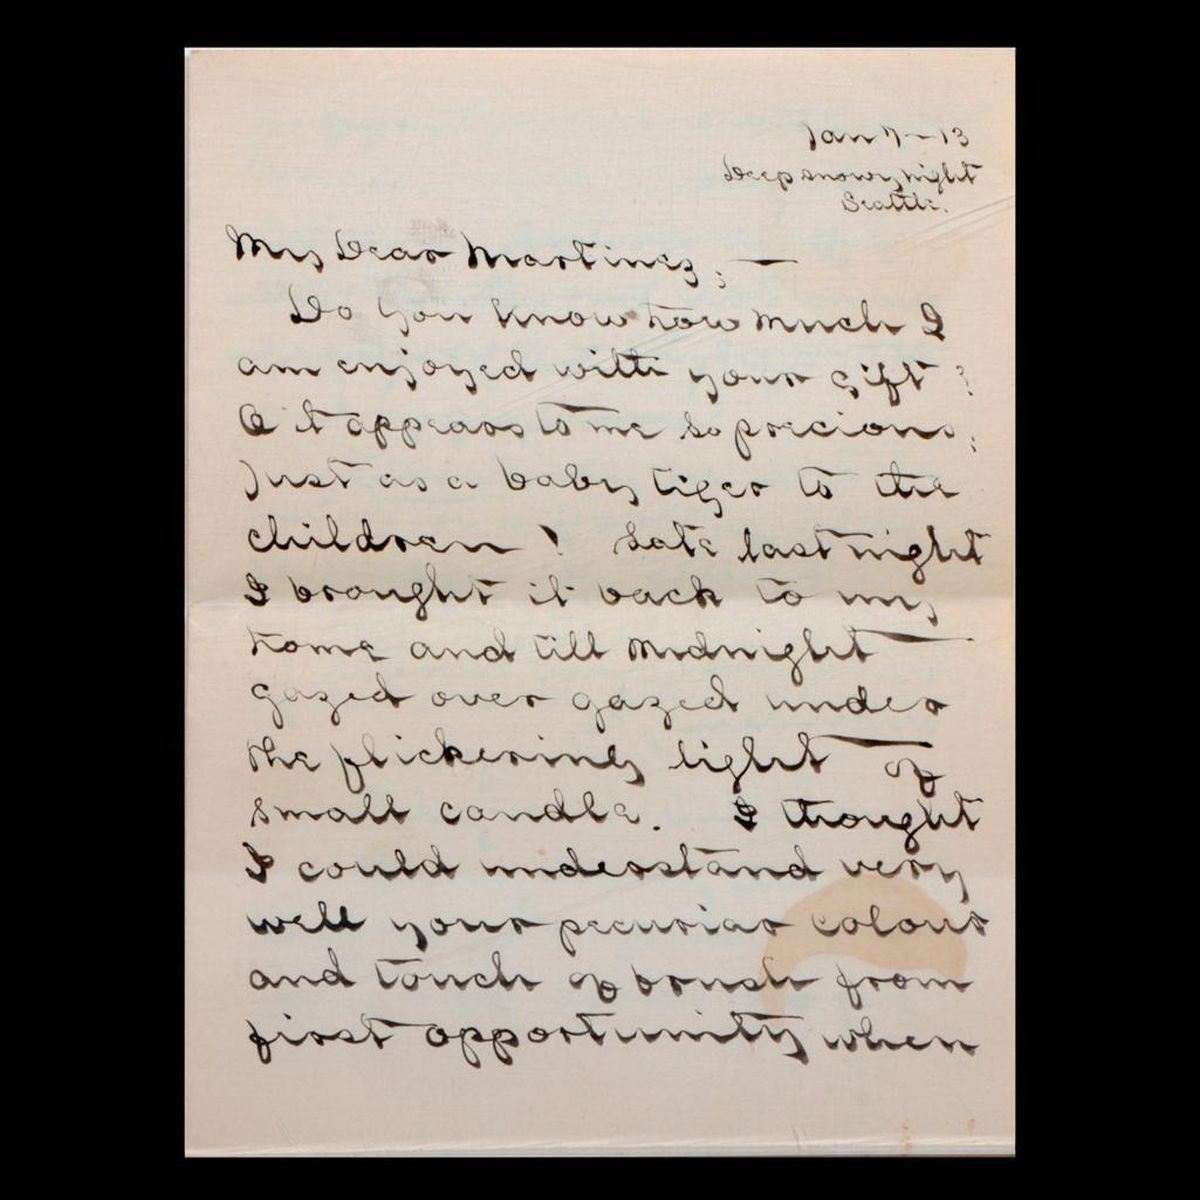 Jan 7 - 13
Deep snowy night
Seattle.
My Dear Martinez; —
Do you know how much I
am enjoyed with your gift ?
O it appears to me so precious;
Just as a baby tiger to the
children ! Late last night
I brought it back to my
home and till midnight
gazed over gazed under
the flickering light of
small candle. I thought
I could understand very
well your pecuriar colour
and touch of brush from
first opportunity when